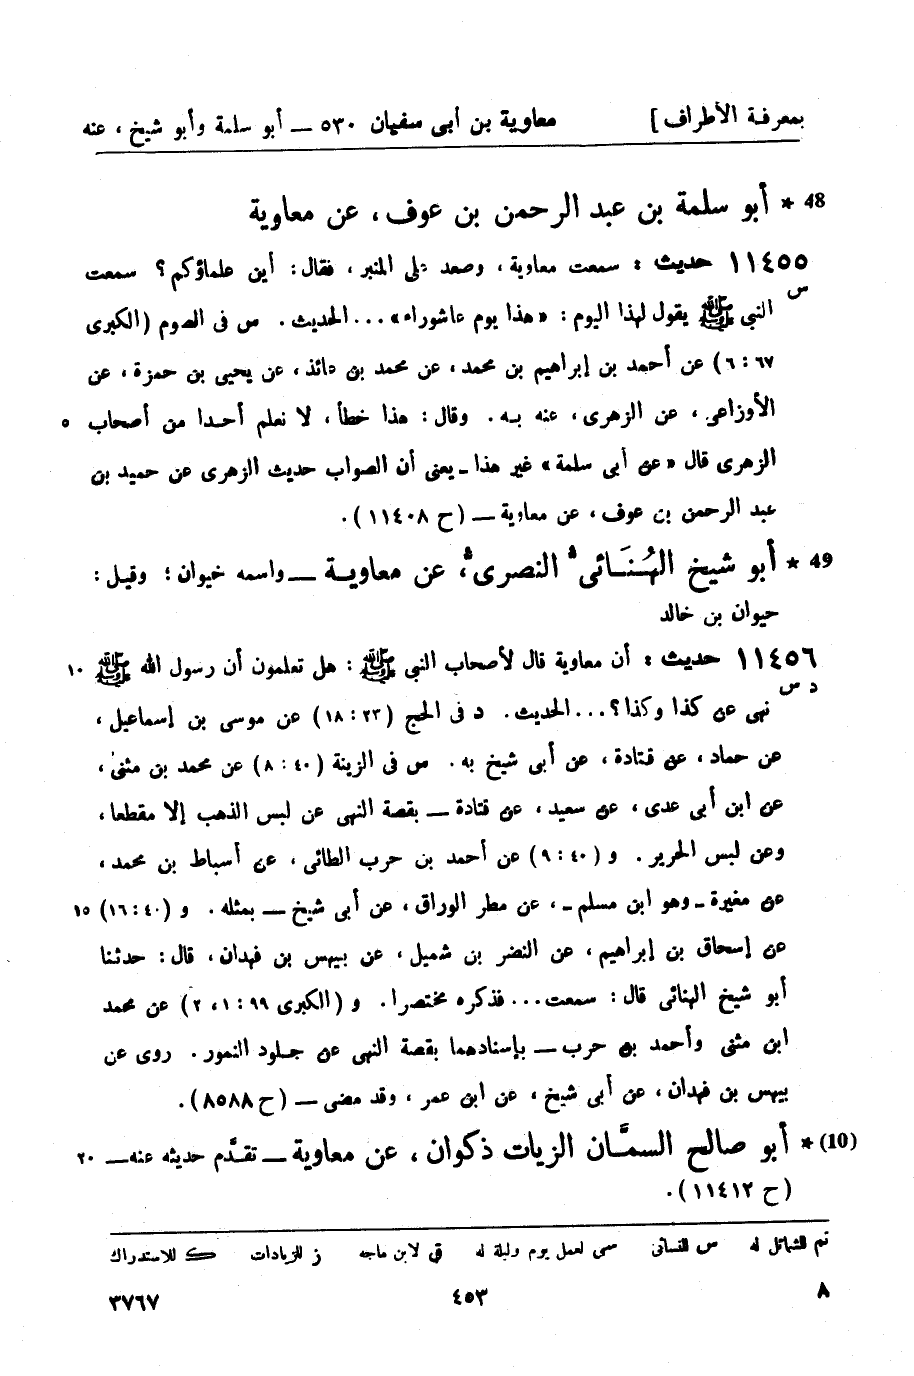 بمعرفة الأطراف] معاوية بن أبى سفيان ٥٣٠ — أبو سلمة وأبو شيخ ، عنه
48 * أبو سلمة بن عبد الرحمن بن عوف ، عن معاوية
١١٤٥٥ حديث : سمعت معاوية ، وصعد على المنبر ، فقال : أين علماؤكم ؟ سمعت
س
النبى ﷺ يقول لهذا اليوم : «هذا يوم عاشوراء» ... الحديث . س فى الصوم (الكبرى
٦٧ : ٦) عن أحمد بن إبراهيم بن محمد ، عن محمد بن عائذ ، عن يحيى بن حمزة ، عن
الأوزاعى ، عن الزهرى ، عنه به . وقال : هذا خطأ ، لا نعلم أحدا من أصحاب ٥
الزهرى قال «عن أبى سلمة» غير هذا ـ يعنى أن الصواب حديث الزهرى عن حميد بن
عبد الرحمن بن عوف ، عن معاوية — (ح ١١٤٠٨) .
49 * أبو شيخ الهُنَائى النصرى ، عن معاوية — واسمه خيوان ؛ وقيل :
حيوان بن خالد
١١٤٥٦ حديث : أن معاوية قال لأصحاب النبى ﷺ : هل تعلمون أن رسول الله ﷺ ١٠
د س
نهى عن كذا وكذا ؟ ... الحديث . د فى الحج (٢٣ : ١٨) عن موسى بن إسماعيل ،
عن حماد ، عن قتادة ، عن أبى شيخ به . س فى الزينة (٤٠ : ٨) عن محمد بن مثنى ،
عن ابن أبى عدى ، عن سعيد ، عن قتادة — بقصة النهى عن لبس الذهب إلا مقطعا ،
وعن لبس الحرير . و (٤٠ : ٩) عن أحمد بن حرب الطائى ، عن أسباط بن محمد ،
عن مغيرة ـ وهو ابن مسلم ـ ، عن مطر الوراق ، عن أبى شيخ — بمثله . و (٤٠ : ١٦) ١٥
عن إسحاق بن إبراهيم ، عن النضر بن شميل ، عن بيهس بن فهدان ، قال : حدثنا
أبو شيخ الهنائى قال : سمعت ... فذكره مختصرا . و (الكبرى ٩٩ : ١ ، ٢) عن محمد
ابن مثنى وأحمد بن حرب — بإسنادهما بقصة النهى عن جلود النمور . روى عن
بيهس بن فهدان ، عن أبى شيخ ، عن ابن عمر ، وقد مضى — (ح ٨٥٨٨) .
(10) * أبو صالح السمَّان الزيات ذكوان ، عن معاوية — تقدَّم حديثه عنه — ٢٠
(ح ١١٤١٢) .
تم للشمائل له س للنسائى سى لعمل يوم وليلة له ق لابن ماجه ز للزيادات ك للاستدراك
٨ ٤٥٣ ٣٧٦٧